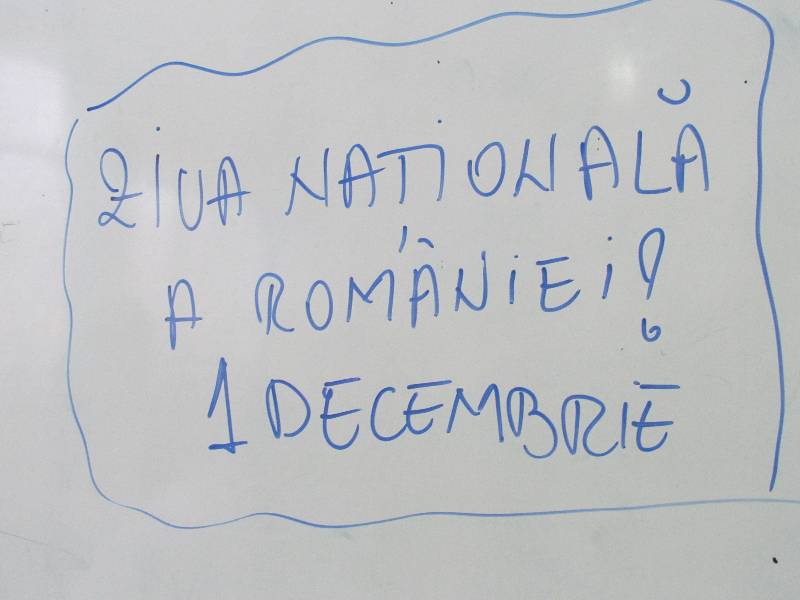 ZIUA NAȚIONALĂ
A ROMÂNIEI!
1 DECEMBRIE